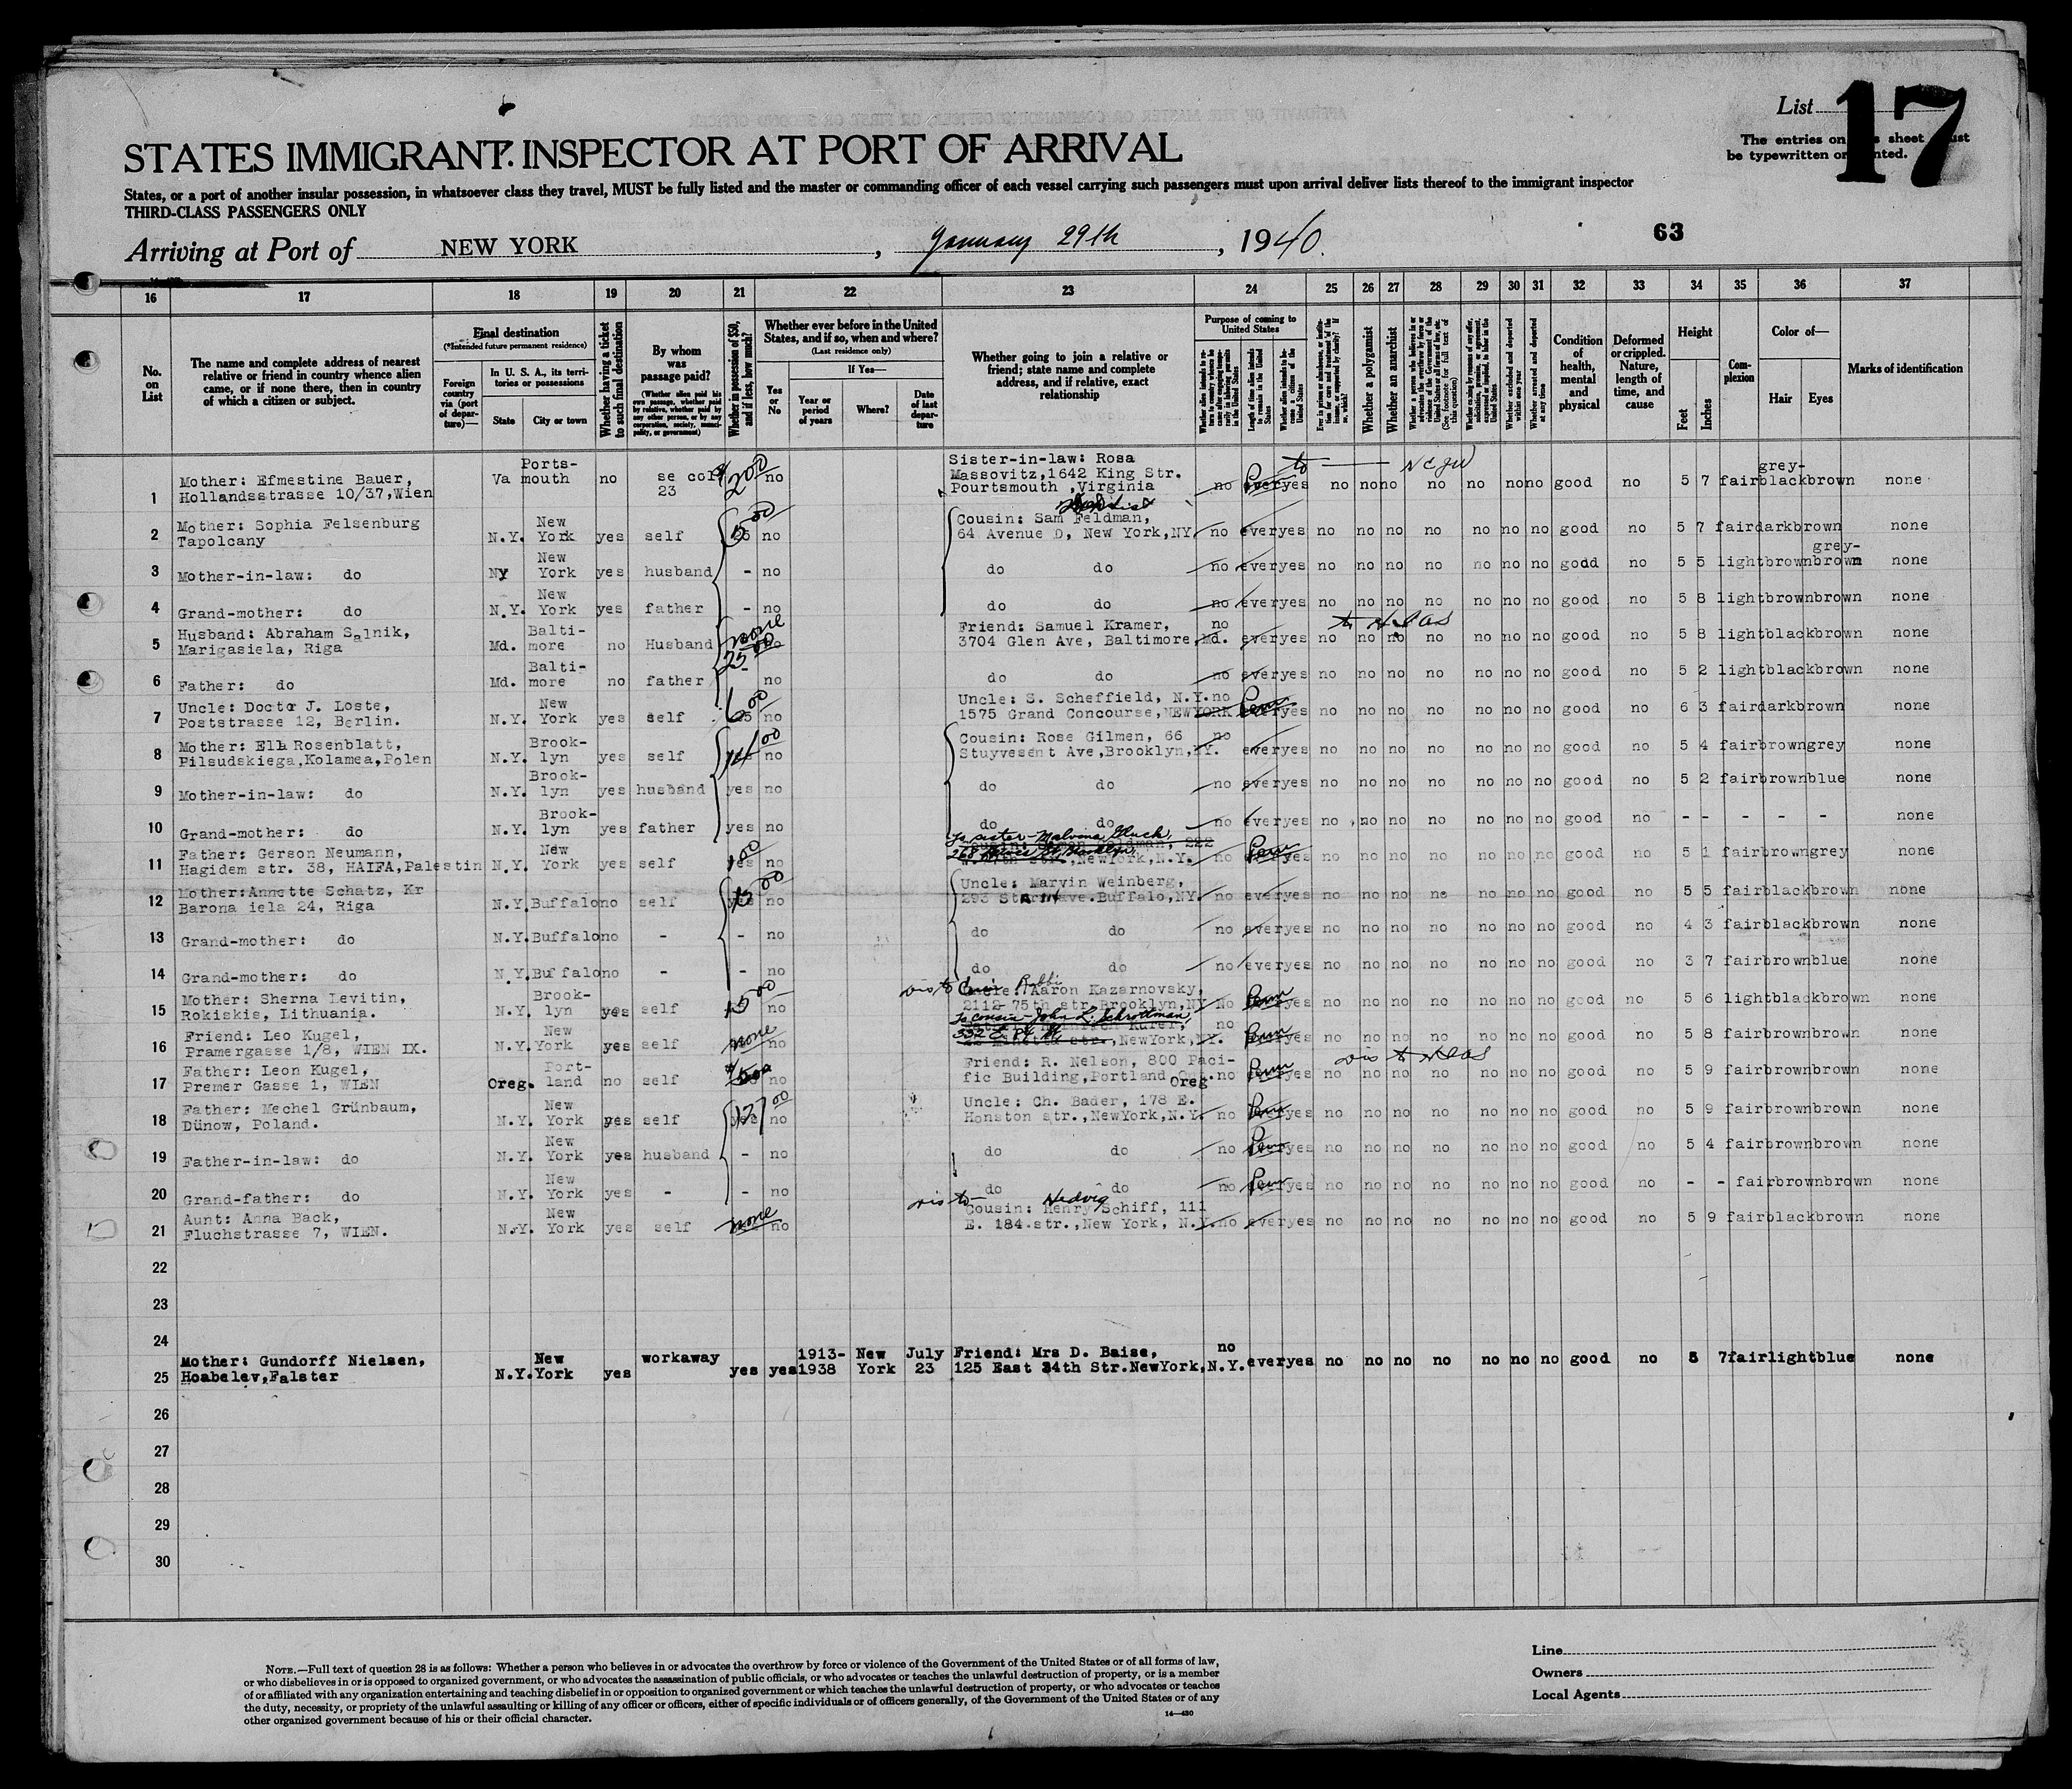 List 17
The entries on sheet must
be typewritten or printed.
STATES IMMIGRANT INSPECTOR AT PORT OF ARRIVAL
States, or a port of another insular possession, in whatsoever class they travel, MUST be fully listed and the master or commanding officer of each vessel carrying such passengers must upon arrival deliver lists thereof to the immigrant inspector
THIRD-CLASS PASSENGERS ONLY
63
Arriving at Port of NEW YORK, January 29th, 1940.
16 17 18 19 20 21 22 23 24 25 26 27 28 29 30 31 32 33 34 35 36 37
No. on List
The name and complete address of nearest relative or friend in country whence alien came, or if none there, then in country of which a citizen or subject.
Final destination
(*Intended future permanent residence)
Foreign country via (port of departure)—
In U. S. A., its territories or possessions
State
City or town
Whether having a ticket to such final destination
By whom was passage paid?
(Whether alien paid his own passage, whether paid by relative, whether paid by any other person, or by any corporation, society, municipality, or government)
Whether in possession of $50, and if less, how much?
Whether ever before in the United States, and if so, when and where?
(Last residence only)
Yes or No
If Yes—
Year or period of years
Where?
Date of last departure
Whether going to join a relative or friend; state name and complete address, and if relative, exact relationship
Purpose of coming to United States
Length of time alien intends to remain in the United States
Whether alien intends to become a citizen of the United States
Whether a polygamist
Whether an anarchist
Whether excluded and deported within one year
Whether arrested and deported at any time
Condition of health, mental and physical
Deformed or crippled. Nature, length of time, and cause
Height
Feet
Inches
Complexion
Color of—
Hair
Eyes
Marks of identification
1 Mother: Efmestine Bauer, Hollandsstrasse 10/37,Wien Va Portsmouth no 23 no Sister-in-law: Rosa Massovitz,1642 King Str. Pourtsmouth ,Virginia no yes no no no no no no no good no 5 7 fair black grey-brown none
2 Mother: Sophia Felsenburg Tapolcany N.Y. New York yes self no Cousin: Sam Feldman, 64 Avenue D, New York,NY. no ever yes no no no no no no no good no 5 7 fair dark brown none
3 Mother-in-law: do Ny New York yes husband - no do do no ever yes no no no no no no no good no 5 5 light brown grey-brown none
4 Grand-mother: do N.Y. New York yes father - no do do no ever yes no no no no no no no good no 5 8 light brown brown none
5 Husband: Abraham Salnik, Marigasiela, Riga Md. Baltimore no Husband none no Friend: Samuel Kramer, 3704 Glen Ave, Baltimore,Md. no ever yes no no no no no no no good no 5 8 light black brown none
6 Father: do Md. Baltimore no father no do do no ever yes no no no no no no no good no 5 2 light black brown none
7 Uncle: Doctor J. Loste, Poststrasse 12, Berlin. N.Y. New York yes self no Uncle: S. Scheffield, N.Y. 1575 Grand Concourse,NEWYORK no yes no no no no no no no good no 6 3 fair dark brown none
8 Mother: Ella Rosenblatt, Pilsudskiega,Kolamea,Polen N.Y. Brooklyn yes self no Cousin: Rose Gilmen, 66 Stuyvesent Ave,Brooklyn,NY. no ever yes no no no no no no no good no 5 4 fair brown grey none
9 Mother-in-law: do N.Y. Brooklyn yes husband yes no do do no ever yes no no no no no no no good no 5 2 fair brown blue none
10 Grand-mother: do N.Y. Brooklyn yes father yes no do do no ever yes no no no no no no no good no - - - - - none
11 Father: Gerson Neumann, Hagidem str. 38, HAIFA,Palestin N.Y. New York yes self no To sister - Malvina Gluck, NewYork,N.Y. no yes no no no no no no no good no 5 1 fair brown grey none
12 Mother:Annette Schatz, Kr Barona iela 24, Riga N.Y. Buffalo no self no Uncle: Marvin Weinberg, 293 ave.Buffalo,NY. no ever yes no no no no no no no good no 5 5 fair black brown none
13 Grand-mother: do N.Y. Buffalo no - - no do do no ever yes no no no no no no no good no 4 3 fair black brown none
14 Grand-mother: do N.Y. Buffalo no - - no do do no ever yes no no no no no no no good no 3 7 fair brown blue none
15 Mother: Sherna Levitin, Rokiskis, Lithuania. N.Y. Brooklyn yes self no Rabbi Aaron Kazarnovsky, 2112 75th str Brooklyn,NY No yes no no no no no no no good no 5 6 light black brown none
16 Friend: Leo Kugel, Pramergasse 1/8, WIEN IX. N.Y. New York yes self none no To cousin - John L. Schrottman, NewYork,NY. no yes no no no no no no no good no 5 8 fair brown brown none
17 Father: Leon Kugel, Premer Gasse 1, WIEN Oreg. Portland no self no Friend: R. Nelson, 800 Pacific Building,Portland Oreg. no yes no no no no no no no good no 5 9 fair brown brown none
18 Father: Mechel Grünbaum, Dünow, Poland. N.Y. New York yes self no Uncle: Ch. Bader, 178 E. Honston str.,NewYork,N.Y. no yes no no no no no no no good no 5 9 fair brown brown none
19 Father-in-law: do N.Y. New York yes husband - no do do no yes no no no no no no no good no 5 4 fair brown brown none
20 Grand-father: do N.Y. New York yes - - no do do no yes no no no no no no no good no - - fair brown brown none
21 Aunt: Anna Back, Fluchstrasse 7, WIEN. N.Y. New York yes self none no Cousin: Hedvig Henry Schiff, 111 E. 184.str.,New York, N.Y. no ever yes no no no no no no no good no 5 9 fair black brown none
22
23
24
25 Mother: Gundorff Nielsen, Hoabelev,Falster N.Y. New York yes workaway yes yes 1913-1938 New York July 23 Friend: Mrs D. Baise, 125 East 34th Str.NewYork,N.Y. no ever yes no no no no no no no good no 5 7 fair light blue none
26
27
28
29
30
Line
Owners
Local Agents
NOTE.—Full text of question 28 is as follows: Whether a person who believes in or advocates the overthrow by force or violence of the Government of the United States or of all forms of law,
or who disbelieves in or is opposed to organized government, or who advocates the assassination of public officials, or who advocates or teaches the unlawful destruction of property, or is a member
of or affiliated with any organization entertaining and teaching disbelief in or opposition to organized government or which teaches the unlawful destruction of property, or who advocates or teaches
the duty, necessity, or propriety of the unlawful assaulting or killing of any officer or officers, either of specific individuals or of officers generally, of the Government of the United States or of any
other organized government because of his or their official character.
14—430